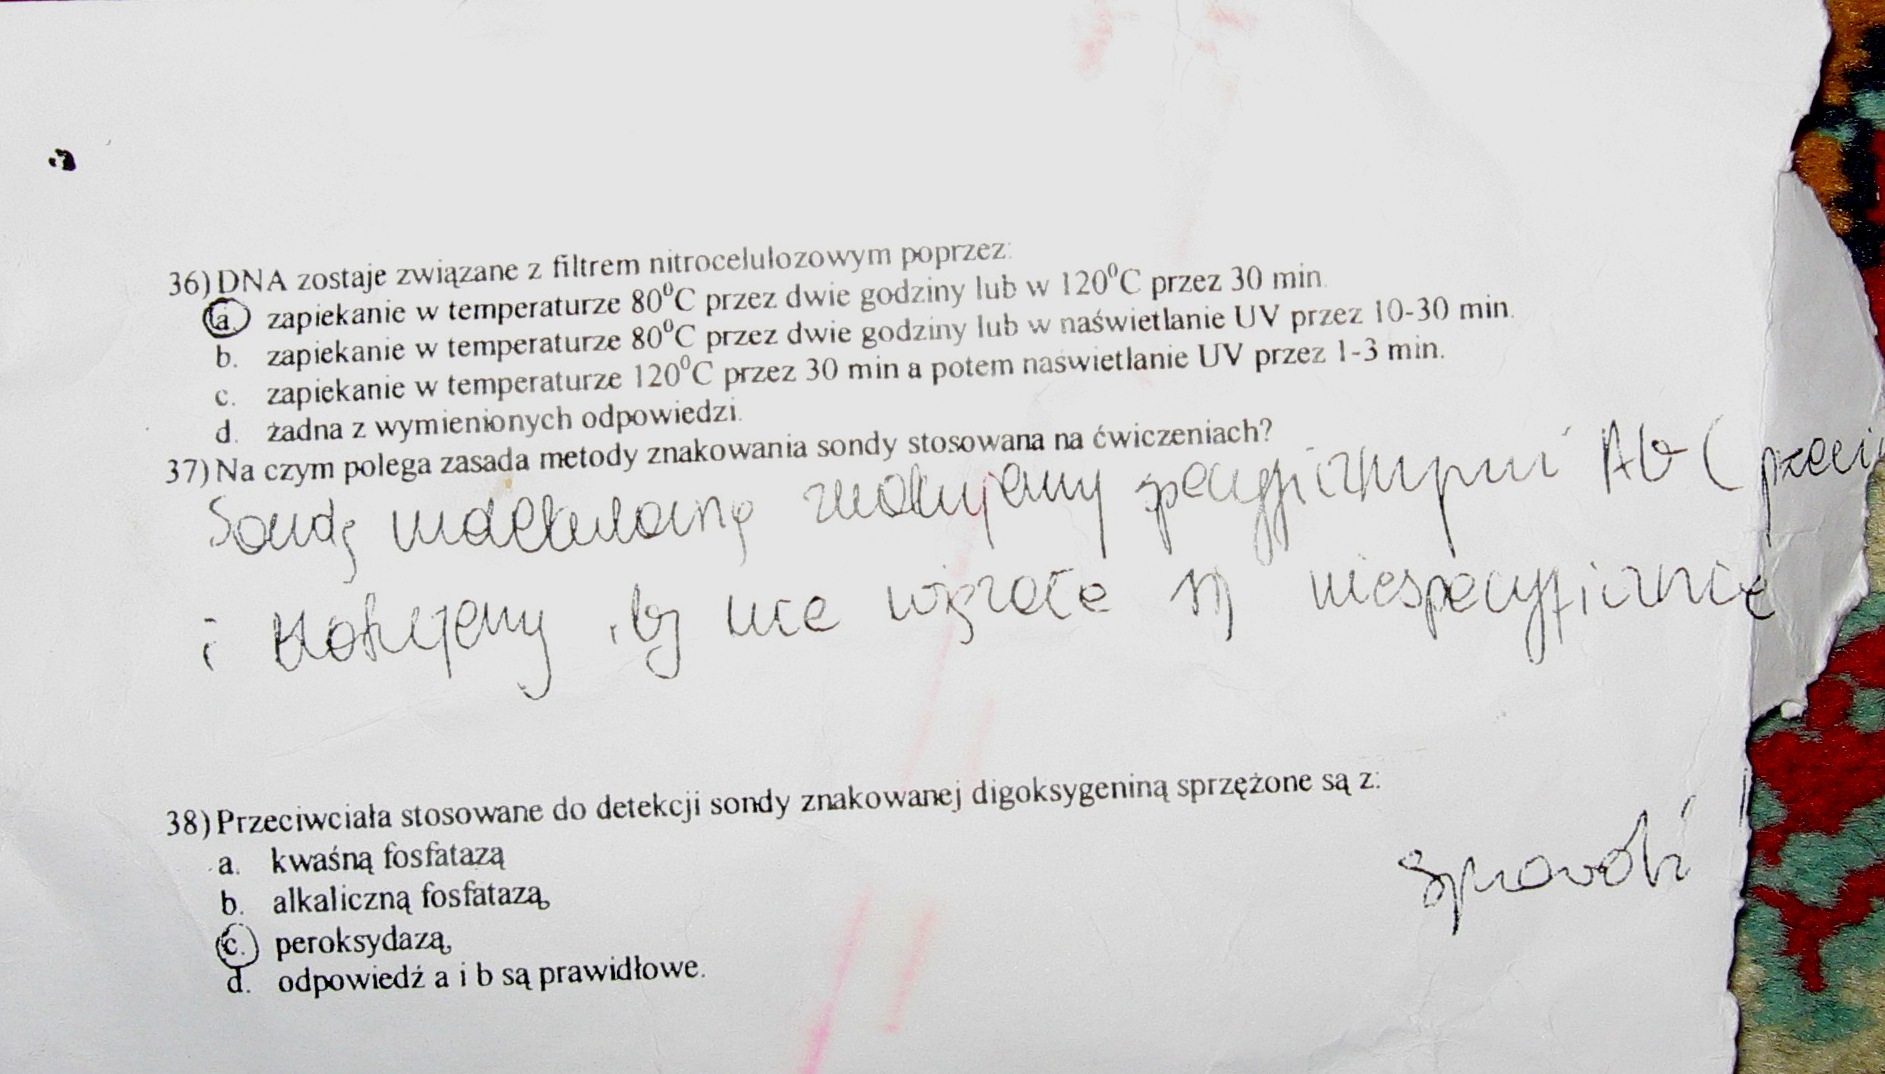 36) DNA zostaje związane z filtrem nitrocelulozowym poprzez:
a. zapiekanie w temperaturze 80⁰C przez dwie godziny lub w 120⁰C przez 30 min.
b. zapiekanie w temperaturze 80⁰C przez dwie godziny lub w naświetlanie UV przez 10-30 min.
c. zapiekanie w temperaturze 120⁰C przez 30 min a potem naświetlanie UV przez 1-3 min.
d. żadna z wymienionych odpowiedzi.
37) Na czym polega zasada metody znakowania sondy stosowana na ćwiczeniach?
Sondę molekularną znakujemy specyficznymi Ab (przeciw
i blokujemy, by nie wiązało się niespecyficznie
38) Przeciwciała stosowane do detekcji sondy znakowanej digoksygeniną sprzężone są z:
a. kwaśną fosfatazą
b. alkaliczną fosfatazą,
c. peroksydazą,
d. odpowiedź a i b są prawidłowe.
sprawdź